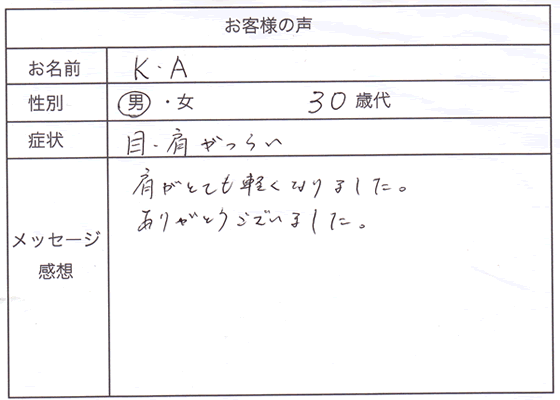 お客様の声
お名前 K・A
性別 男・女 30歳代
症状 目・肩がつらい
メッセージ
感想
肩がとても軽くなりました。
ありがとうございました。